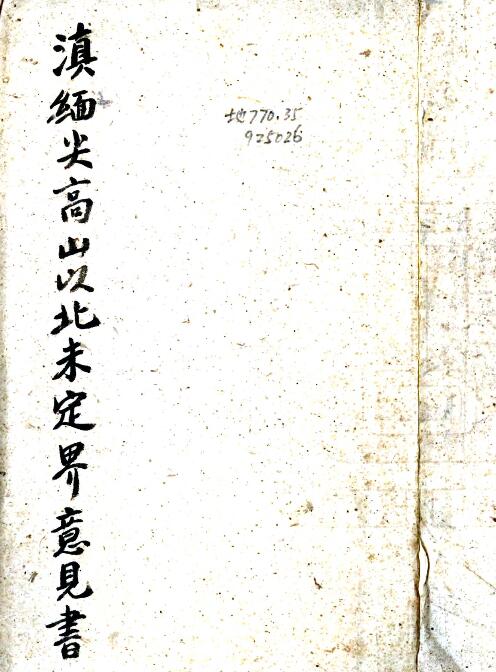 滇緬尖高山以北未定界意見書
地770.35
925026